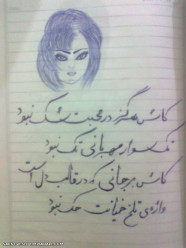 کاش هرگز در محبت شک نبود
تک سوار مهربانی تک نبود
کاش بر جانی که در قالب دل است
واژه‌ی تلخ خیانت حک نبود